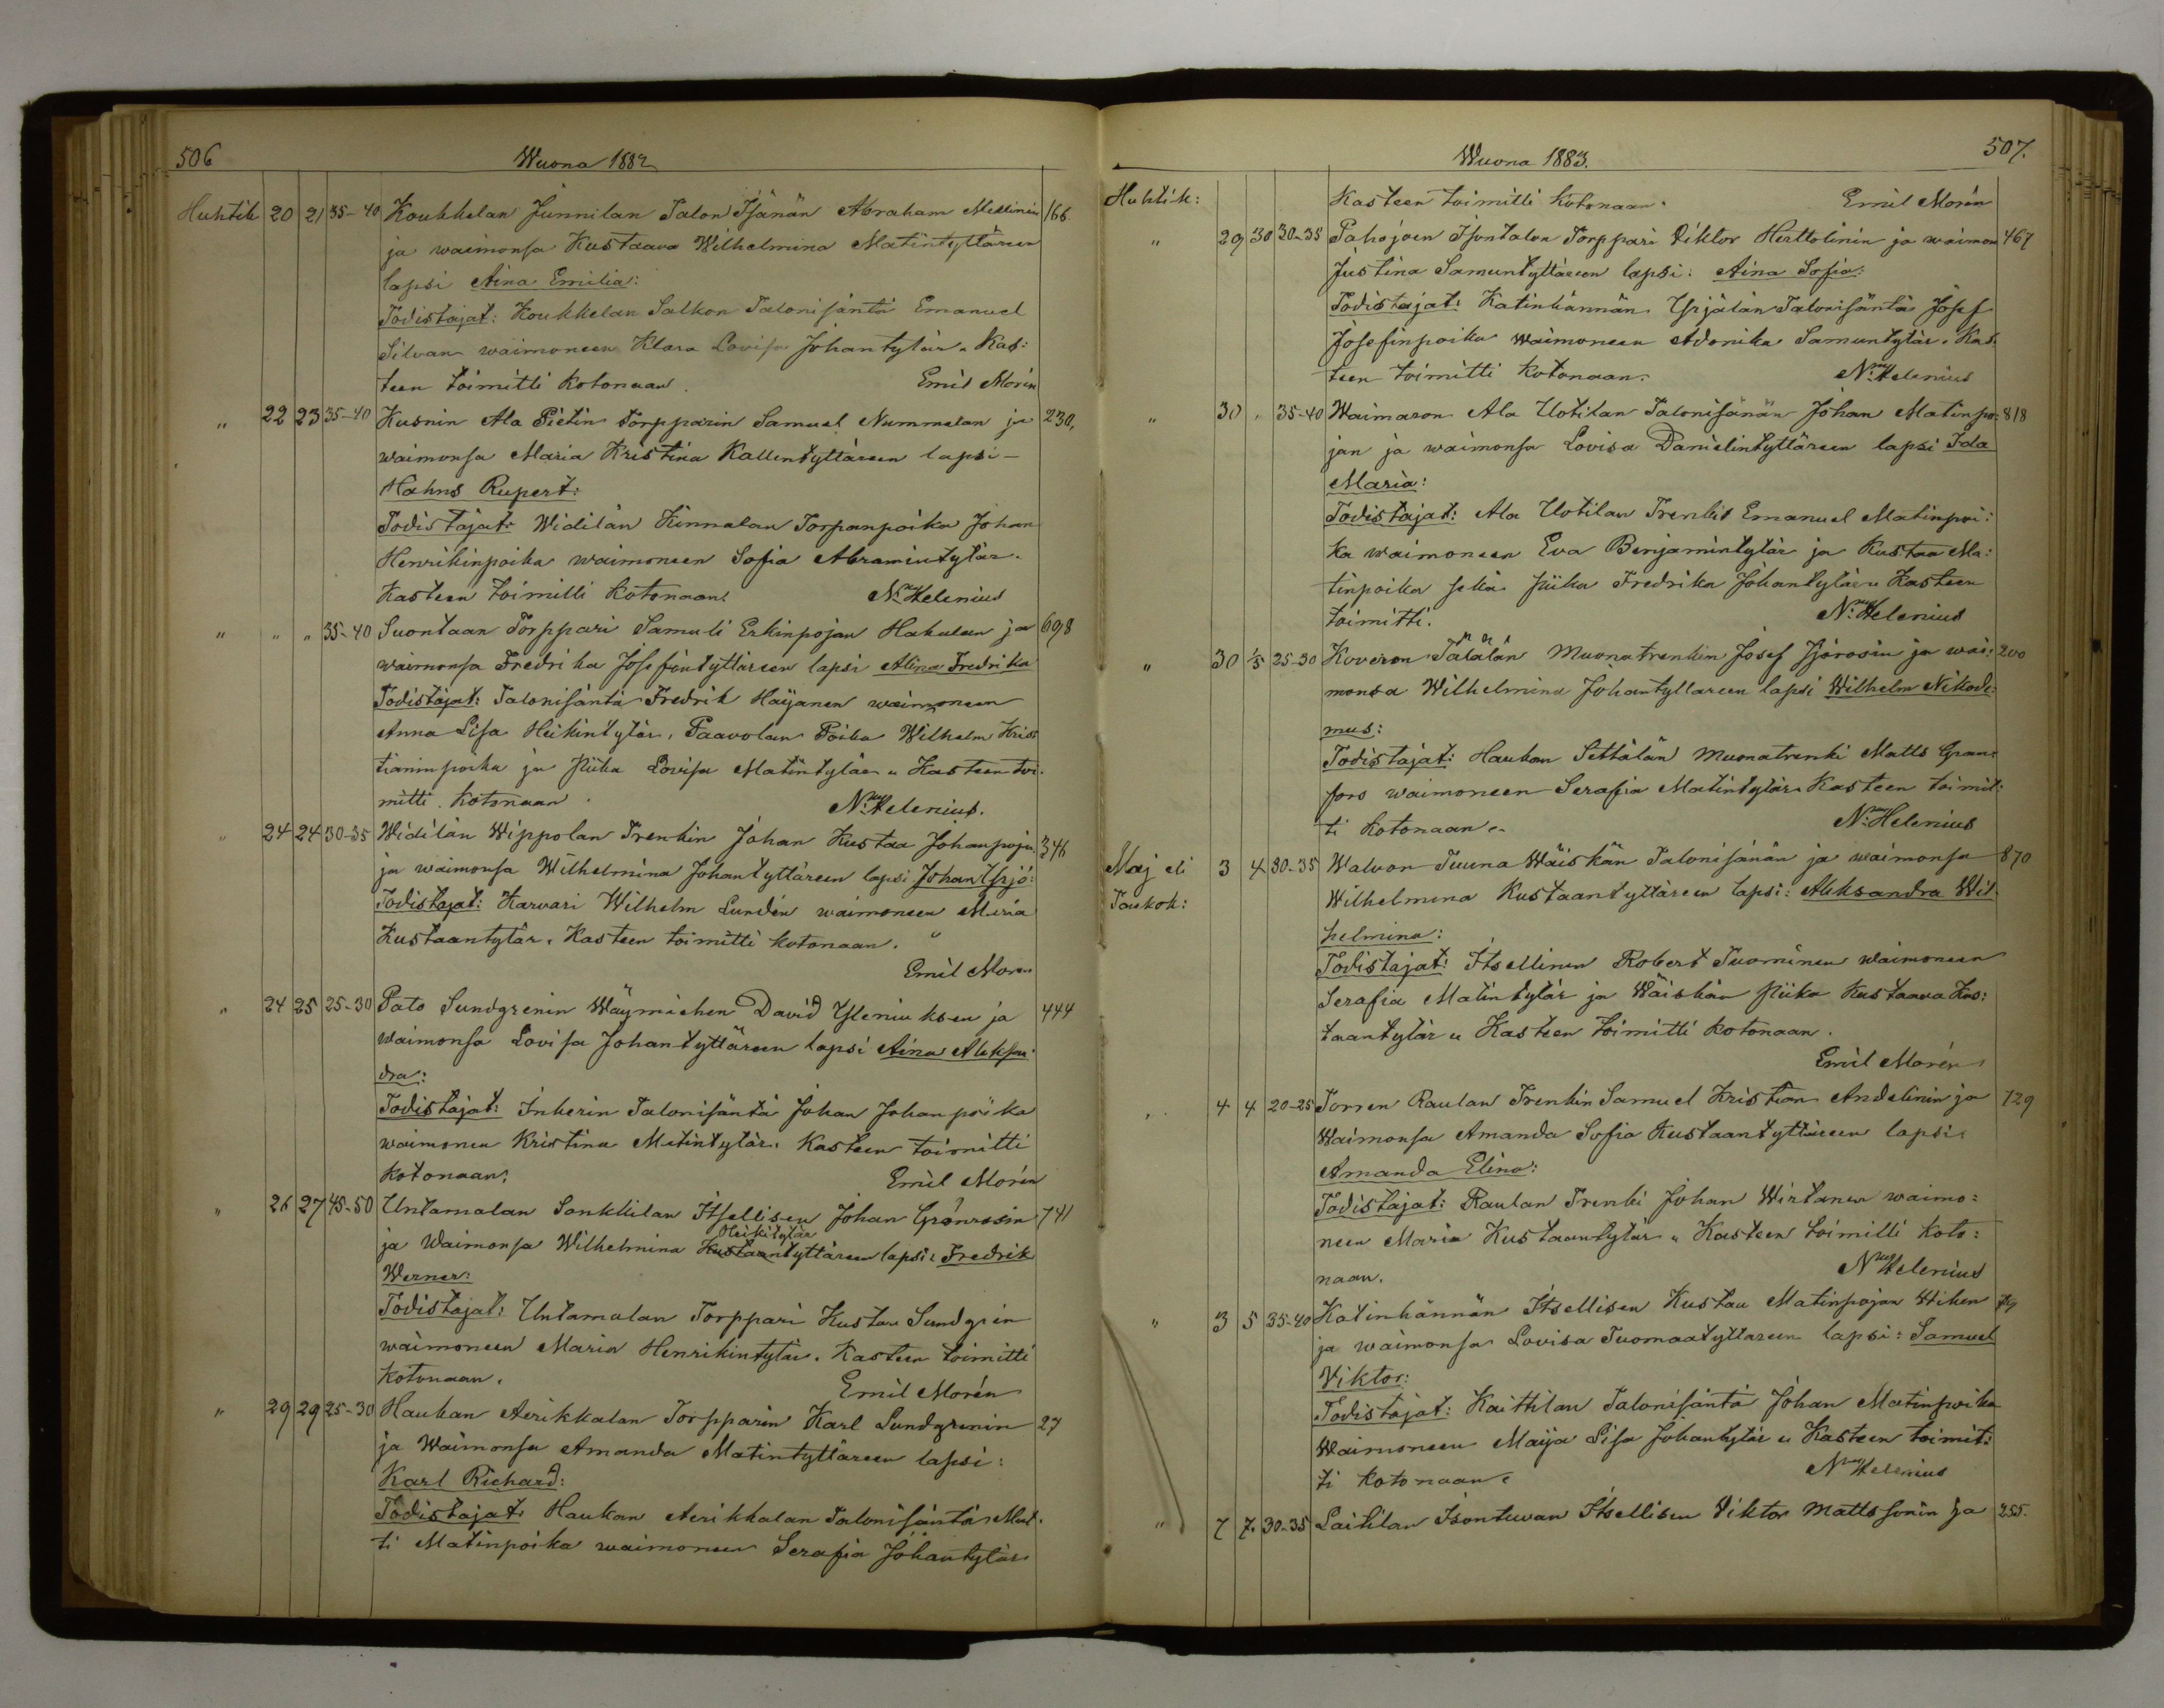 506
Wuona 1882
Huhtik 20 21 35-40 Koukkelan Junnilan Talon Isänän Abraham Mellinin 166
ja waimonsa Kustaava Wilhelmina Matintyttäreen
lapsi Aina Emilia:
Todistajat: Koukkelan Salkon Talonisäntä Emanuel
Silvan waimoneen Klara Lovisa Johantytär. Kas:
teen toimitti kotonaan. Emil Morén
" 22 23 35-40 Kusnin Ala Pietin Torpparin Samuel Nummelan ja 230,
waimonsa Maria Kristina Kallentyttäreen lapsi –
Hahns Rupert:
Todistajat: Widilän Kinnalan Torpanpoika Johan
Henrikinpoika waimoneen Sofia Abramintytär.
Kasteen toimitti kotonaan. N. Helenius
" " " 35-40 Suontaan Torppari Samuli Erkinpojan Hakalan ja 698
waimonsa Fredrika Josefintyttäreen lapsi Alina Fredrika
Todistajat: Talonisäntä Fredrik Haijanen waimoneen
Anna Lisa Heikintytär, Paavolan Poika Wilhelm Kris:
tianinpoika ja Piika Lovisa Matintytär " Kasteen toi:
mitti kotonaan. N. Helenius.
" 24 24 30-35 Widilän Wippolan Trenkin Johan Kustaa Johanpojan 346
ja waimonsa Wilhelmina Johantyttäreen lapsi Johan Yrjö:
Todistajat: Karvari Wilhelm Lundén waimoneen Maria
Kustaantytär. Kasteen toimitti kotonaan. "
Emil Morén
" 24 25 25-30 Pato Sundgrenin Wäymiehen David Yleniuksen ja 444
waimonsa Lovisa Johantyttäreen lapsi Aina Aleksan:
dra:
Todistajat: Inkerin Talonisäntä Johan Johanpoika
waimoneen Kristina Matintytär. Kasteen toimitti
kotonaan. Emil Morén
" 26 27 45-50 Untamalan Sonkkilan Itsellisen Johan Grönrosin 741
Heikitytär
ja Waimonsa Wilhelmina Kustaantyttäreen lapsi: Fredrik
Werner:
Todistajat: Untamalan Torppari Kustaa Sundgrén
waimoneen Maria Henrikintytär. Kasteen toimitti
kotonaan. Emil Morén
" 29 29 25-30 Haukan Aerikkalan Torpparin Karl Lundgrenin 27
ja Waimonsa Amanda Matintyttäreen lapsi:
Karl Richard:
Todistajat: Haukan Aerikkalan Talonisäntä Mat:
ti Matinpoika waimoneen Serafia Johantytär
507.
Wuona 1883.
Huhtik: Kasteen toimitti kotonaan. Emil Morén
" 29 30 30-35 Pahojoen Isontalon Torppari Viktor Herttolinin ja waimon 467
Justina Samuntyttäreen lapsi: Aina Sofia:
Todistajat: Katinhännän Yrjälän Talonisäntä Josef
Josefinpoika waimoneen Adonika Samuntytär. Kas:
teen toimitti kotonaan. N. Helenius
" 30 " 35-40 Waimaron Ala Uotilan Talonisänän Johan Matinpo: 818
jan ja waimonsa Lovisa Danielintyttäreen lapsi Ida
Maria:
Todistajat: Ala Uotilan Trenkit Emanuel Matinpoi:
ka waimoneen Eva Benjamintytär ja Kustaa Ma:
tinpoika sekä Piika Fredrika Johantytär " Kasteen
toimitti. N. Helenius
" 30 1/5 25-30 Koveron Tälälän Muonatrenkin Josef Sjöroosin ja wai: 200
monsa Wilhelmina Johantyttareen lapsi Wilhelm Nikode:
mus:
Todistajat: Haukan Settälän Muonatrenki Matts Gran:
fors waimoneen Serafia Matintytär. Kasteen toimit:
ti kotonaan. N. Helenius
Maj eli 3 4 30-35 Walvon Tuuna Wäiskän Talonisänän ja waimonsa 870
Toukok: Wilhelmina Kustaantyttäreen lapsi: Aleksandra Wil:
helmina:
Todistajat: Itsellinen Robert Tuominen waimoneen
Serafia Matintytär ja Wäiskän Piika Kustaava Kus:
taantytär " Kasteen toimitti kotonaan.
Emil Morén
" 4 4 20-25 Torren Raulan Trenkin Samuel Kristian Andelinin ja 729
Waimonsa Amanda Sofia Kustaantyttäreen lapsi:
Amanda Elina:
Todistajat: Raulan Trenki Johan Wirtanen waimo:
neen Maria Kustaantytär " Kasteen toimitti koto:
naan. N. Helenius
" 3 5 35-40 Katinhännän Itsellisen Kustaa Matinpojan Wiken 79
ja waimonsa Lovisa Tuomaatyttareen lapsi: Samuel
Viktor:
Todistajat: Kaittilan Talonisäntä Johan Matinpoika
Waimoneen Maija Lisa Johantytär " Kasteen toimit:
ti kotonaan. N. Helenius
" 7 7. 30-35 Laitilan Isontuvan Itsellisen Viktor Mattssonin ja 255.